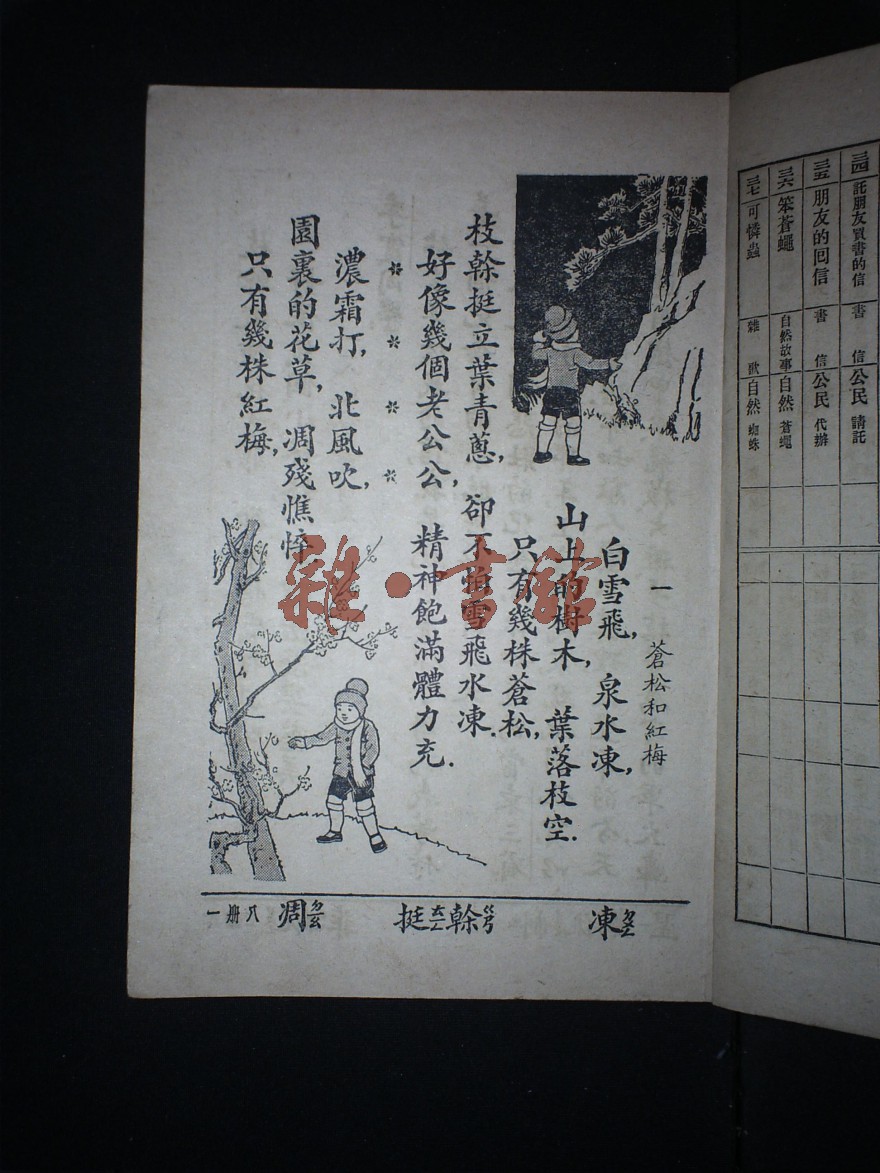 三四 託朋友買書的信 書信 公民 請託
三五 朋友的回信 書信 公民 代辦
三六 笨蒼蠅 自然故事 自然 蒼蠅
三七 可憐蟲 雜歌 自然 蜘蛛
一 蒼松和紅梅
白雪飛，泉水凍，
山上的樹木，葉落枝空．
只有幾株蒼松，
枝幹挺立葉青蔥，卻不怕雪飛水凍．
好像幾個老公公，精神飽滿體力充．
＊＊＊＊
濃霜打，北風吹，
園裏的花草，凋殘憔悴，
只有幾株紅梅，
凍ㄉㄨㄥ
幹ㄍㄢ
挺ㄊㄧㄥ
凋ㄉㄧㄠ
八冊 一
雜·書館